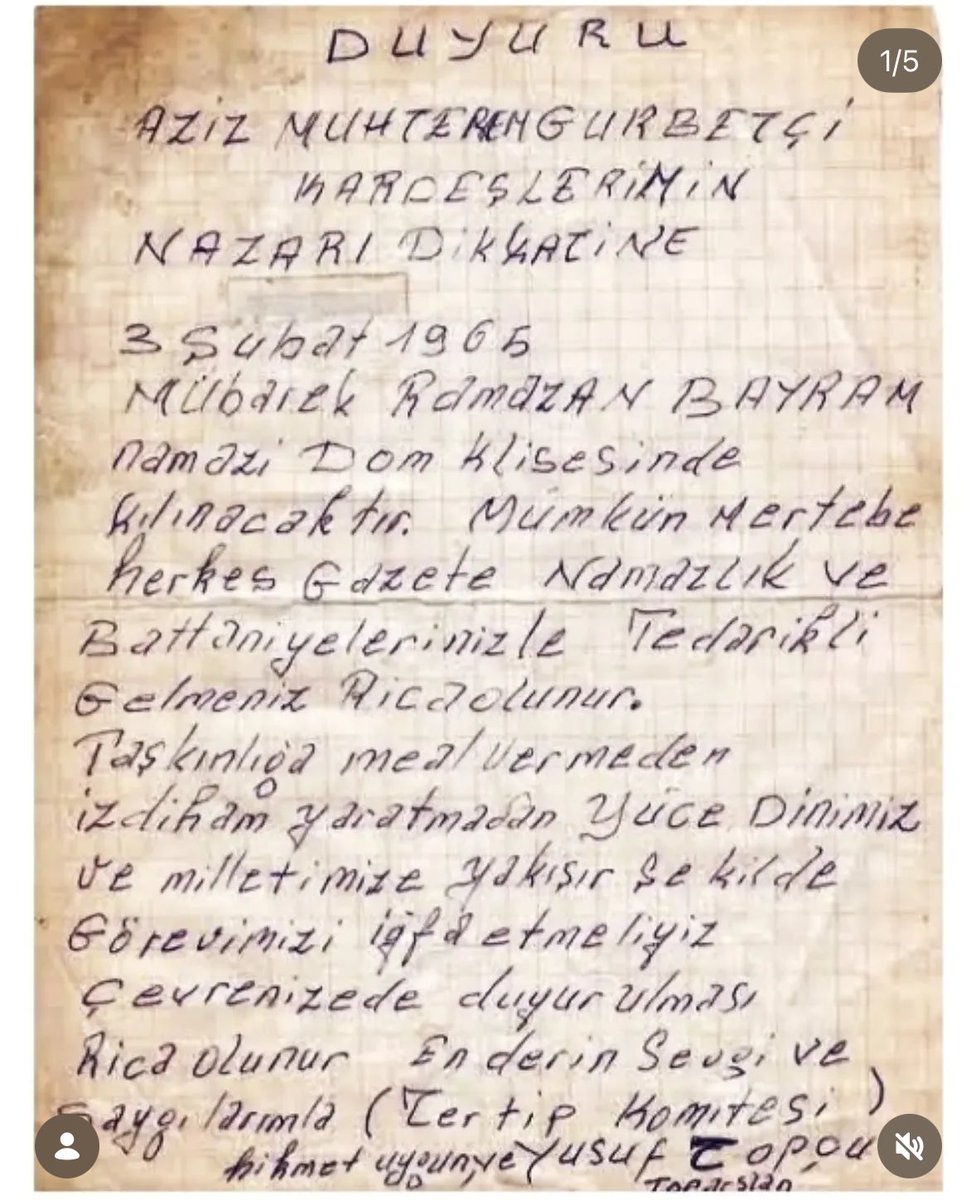 DUYURU
1/5
AZİZ MUHTEREM GURBETÇİ
KARDEŞLERİMİN
NAZARI DİKKATİNE
3 Şubat 1965
Mübarek RamazAN BAYRAM
namazi Dom Klisesinde
kılınacaktır. Mümkün Mertebe
herkes Gazete Namazlık ve
Battaniyelerinizle Tedarikli
Gelmeniz Ricaolunur.
Taşkınlığa meal vermeden
izdiham yaratmadan Yüce Dinimiz
ve milletimize yakışır şekilde
Görevimizi
etmeliyiz
Çevrenizede duyurulması
Rica olunur En derin Sevgi ve
Saygılarımla (Tertip Komitesi)
hikmet uygun ve Yusuf Topçu
Toparslan